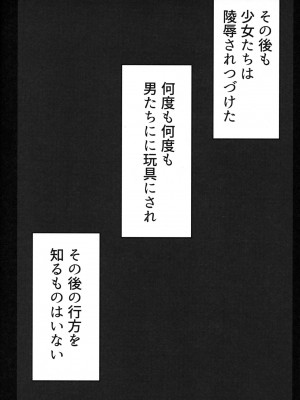 その後も
少女たちは
陵辱されつづけた
何度も何度も
男たちにに玩具にされ
その後の行方を
知るものはいない